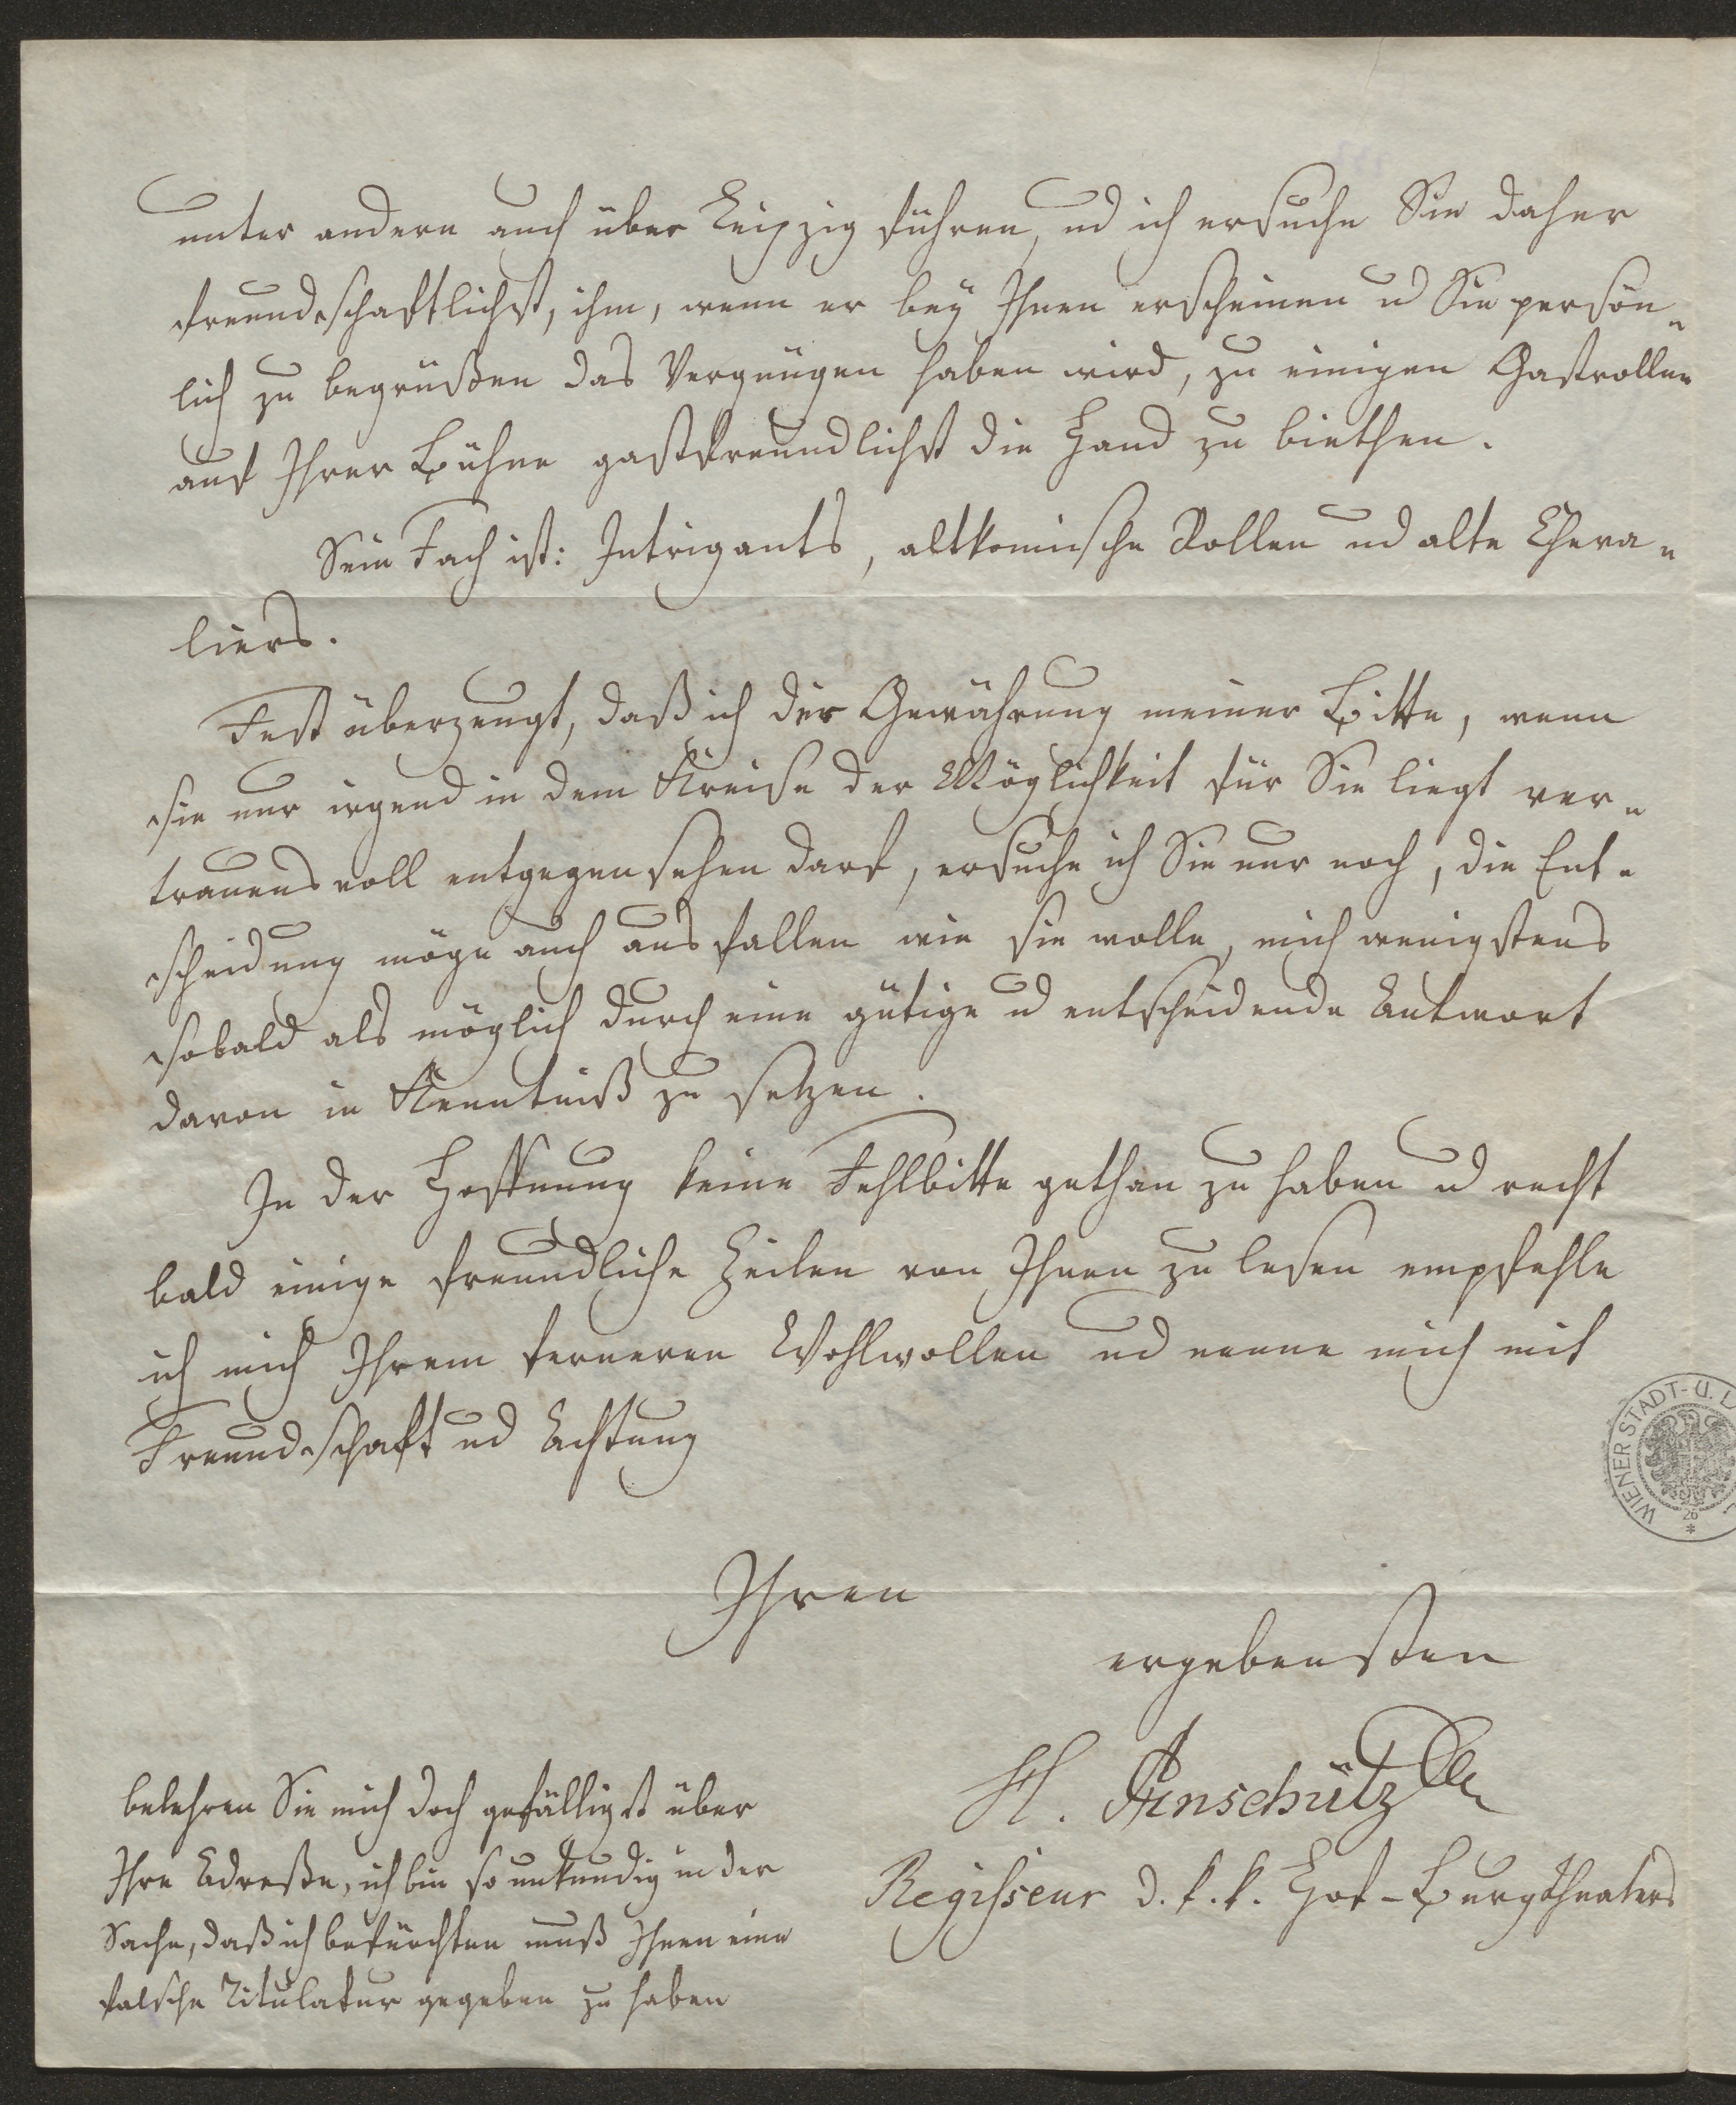 unter andern auch über Leipzig führen, und ich ersuche Sie daher
freundschaftlichst, ihm, wenn er bey Ihnen erscheinen u Sie persön-
lich zu begrüßen das Vergnügen haben wird, zu einigen Gastrollen
auf Ihrer Bühne gastfreundlichst die Hand zu biethen.
Sein Fach ist: Intrigants, altkomische Rollen und alte Cheva-
liers.
Fest überzeugt, daß ich der Gewährung meiner Bitte, wenn
sie nur irgend in dem Kreise der Möglichkeit für Sie liegt ver-
trauensvoll entgegensehen darf, ersuche ich Sie nur noch, die Ent-
scheidung möge auch ausfallen wie sie wolle, mich wenigstens
sobald als möglich durch eine gütige u entscheidende Antwort
davon in Kenntniß zu setzen.
In der Hoffnung keine Fehlbitte gethan zu haben u recht
bald einige freundliche Zeilen von Ihnen zu lesen empfehle
ich mich Ihrem ferneren Wohlwollen und nenne mich mit
Freundschaft und Achtung
Ihren
ergebensten
H. Anschütz
Regisseur d. k. k. Hof-Burgtheaters
belehren Sie mich doch gefälligst über
Ihre Adreße, ich bin so unkundig in der
Sache, daß ich befürchten muß Ihnen eine
falsche Titulatur gegeben zu haben
WIENER STADT- U. L
26